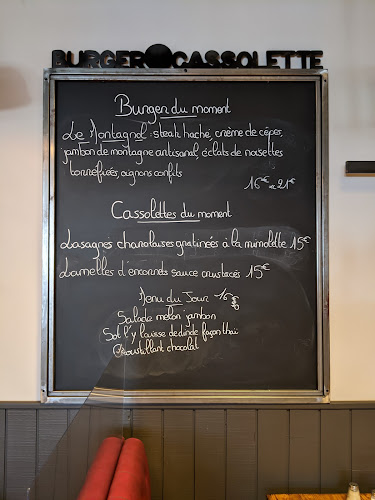 BURGER CASSOLETTE
Burger du moment
Le Montagnol : steak haché, crème de cèpes,
jambon de montagne artisanal, éclats de noisettes
torréfiées, oignons confits
16€ ou 21€
Cassolettes du moment
Lasagnes charolaises gratinées à la mimolette 15€
Lamelles d'encornets sauce crustacés 15€
Menu du Jour 16€
Salade melon jambon
de dinde façon thaï
Croustillant chocolat